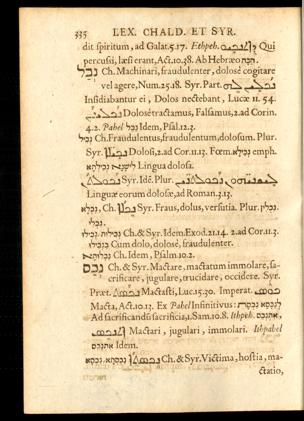 335 LEX. CHALD. ET SYR.
dit spiritum, ad Galat. 5.17. Ethpeh. Qui
percussi, læsi erant, Act. 10.38. Ab Hebræo הכה
נכל Ch. Machinari, fraudulenter, dolosè cogitare
vel agere, Num. 25.18. Syr. Part.
Insidiabantur ei, Dolos nectebant, Lucæ 11. 54.
Dolosè tractamus, Falsamus, 2. ad Corin.
4.2. Pahel נכל Idem, Psal. 12.3.
נכיל Ch. Fraudulentus, fraudulentum, dolosum. Plur.
Syr. Dolosi, 2. ad Cor. 11.13. Fœm. נכילא emph.
נכילתא לישנא Lingua dolosa.
Syr. Idē. Plur.
Linguæ eorum dolosæ, ad Roman. 3.13.
נכלא, Ch. Syr. Fraus, dolus, versutia. Plur. נכלין,
נכלי
נכילו, נכילות Ch. & Syr. Idem. Exod. 21.14. 2. ad Cor. 11.3.
בנכילו Cum dolo, dolosè, fraudulenter.
נכלותא Ch. Idem, Psalm. 10.2.
נכס Ch. & Syr. Mactare, mactatum immolare, sa-
crificare, jugulare, trucidare, occidere. Syr.
Præt. Mactasti, Luc. 15.30. Imperat.
Macta, Act. 10.13. Ex Pahel Infinitivus: לנכסא נכסת
Ad sacrificandū sacrificia, 1. Sam. 10.8. Ithpeh. אתנכס,
Mactari, jugulari, immolari. Ithpahel
אתנכס Idem.
נכסא, נכסתא Ch. & Syr. Victima, hostia, ma-
ctatio,